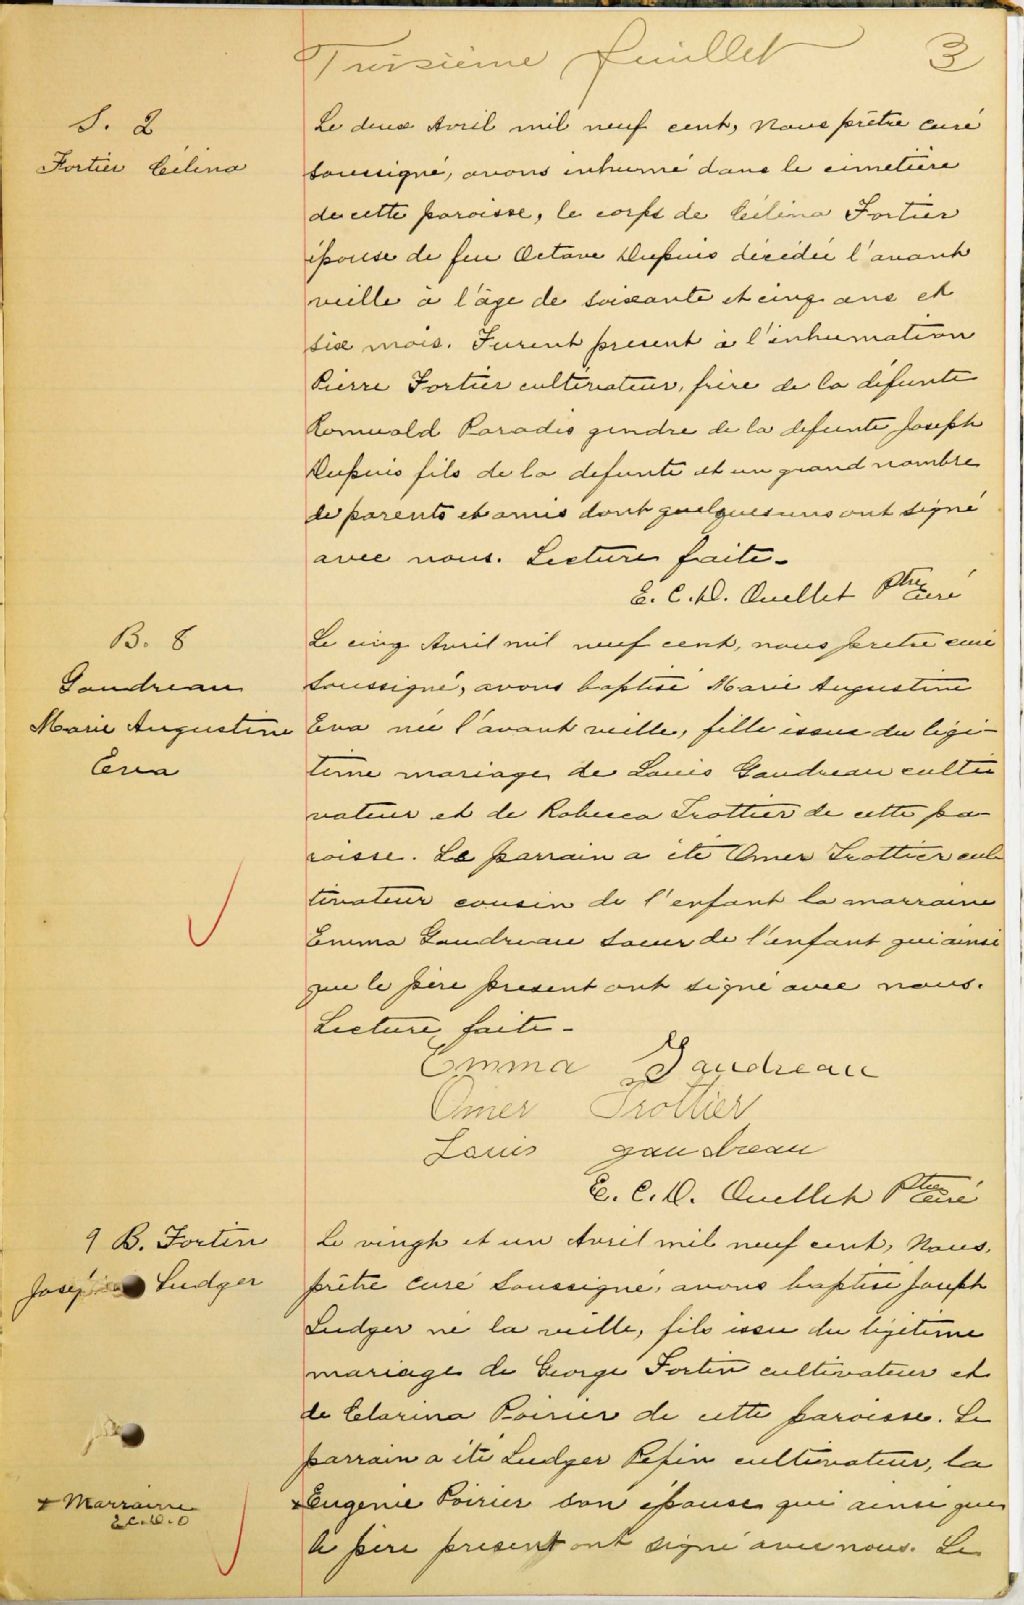 Troisième feuillet 3
S. 2
Fortier Célina
Le deux Avril mil neuf cent, nous prêtre curé
soussigné, avons inhumé dans le cimetière
de cette paroisse, le corps de Célina Fortier
épouse de feu Octave Dupuis décédée l'avant
veille à l'âge de soixante et cinq ans et
six mois. Furent present à l'inhumation
Pierre Fortier cultivateur, frère de la défunte
Romuald Paradis gendre de la defunte Joseph
Dupuis fils de la defunte et un grand nombre
de parents et amis dont quelques uns ont signé
avec nous. Lecture faite-
E. C. D. Ouellet Ptre curé
B. 8
Gaudreau
Marie Augustine
Eva
Le cinq Avril mil neuf cent, nous pretre curé
soussigné, avons baptisé Marie Augustine
Eva née l'avant veille, fille issue du légi-
time mariage de Louis Gaudreau culti
vateur et de Rebecca Trottier de cette pa-
roisse. Le parrain a été Omer Trottier cul-
tivateur cousin de l'enfant la marraine
Emma Gaudreau soeur de l'enfant qui ainsi
que le père present ont signé avec nous.
Lecture faite-
Emma Gaudreau
Omer Trottier
Louis gaudreau
E. C. D. Ouellet Ptre curé
9 B. Fortin
Joseph Ludger
Le vingt et un Avril mil neuf cent, Nous,
prêtre curé soussigné, avons baptisé Joseph
Ludger né la veille, fils issu du légitime
mariage de George Fortin cultivateur et
de Clarina Poirier de cette paroisse. Le
parrain a été Ludger Pepin cultivateur, la
x Eugenie Poirier son épouse qui ainsi que
le père present ont signé avec nous. Le
x Marraine
E.C.D.O